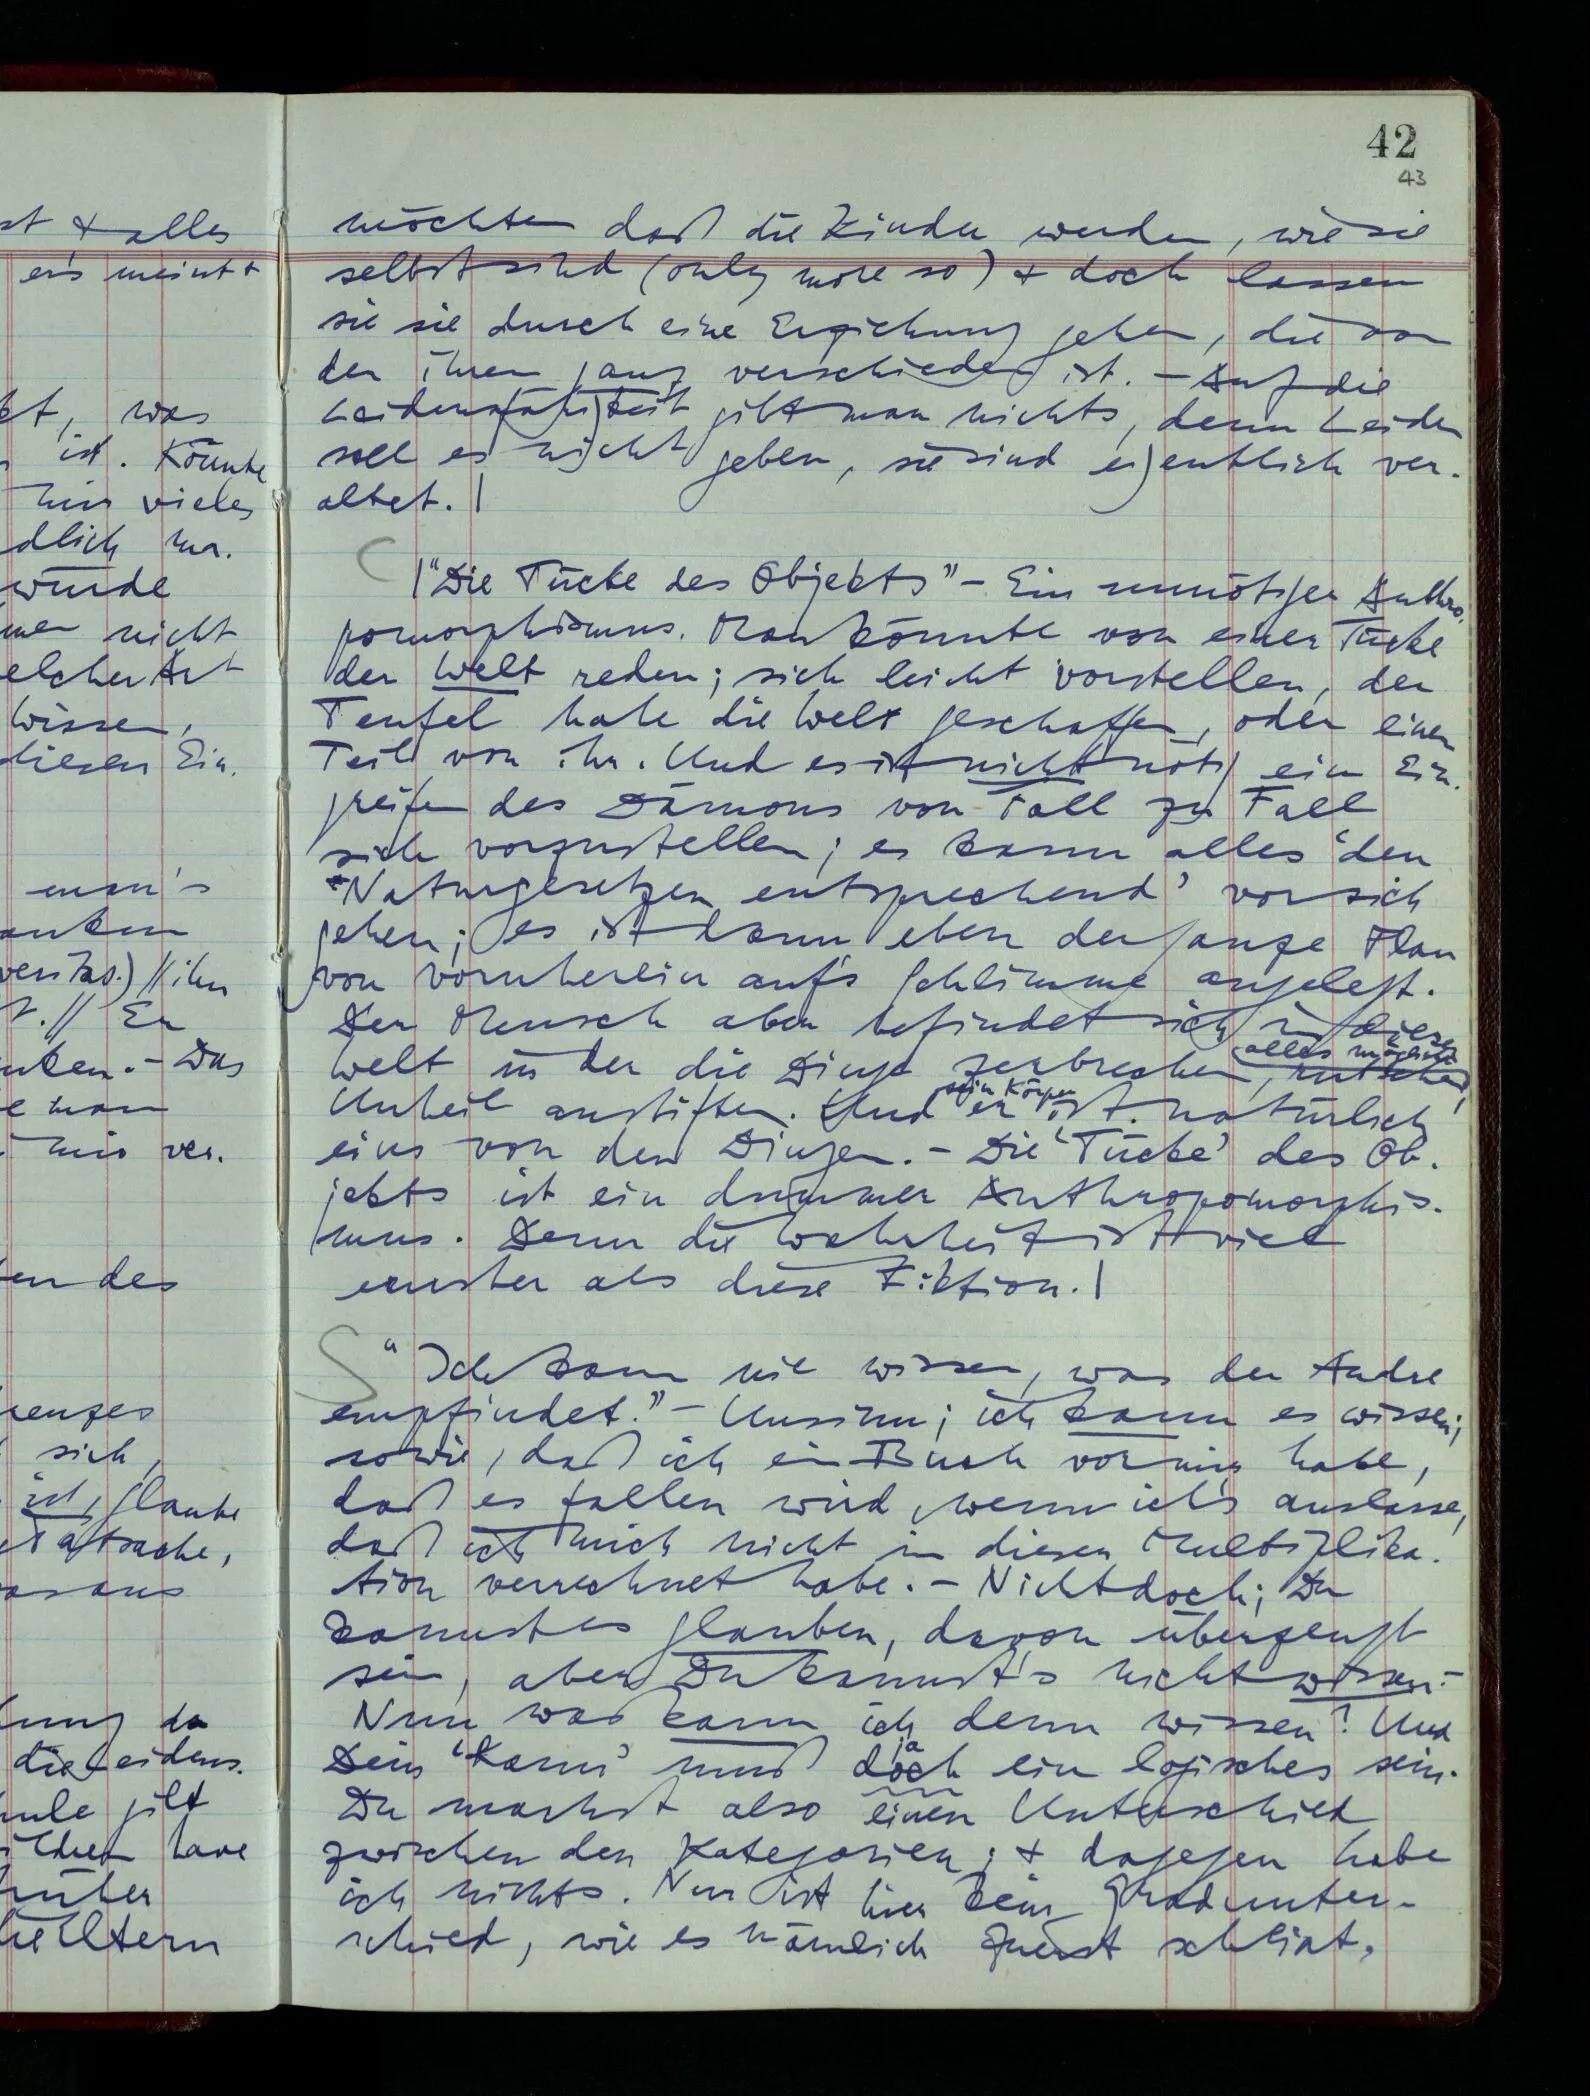 42
43
st + alles
ers meint +
kt, was
ist. Könnte
hin vieles
dlich ma.
würde
mer nicht
elcher Art
wissen,
diesen Ein.
man's
anken
veritas.) // ihn
r. // Er
nken. – Das
e man
mir ver.
en des
renzes
sich,
ist, glaube
Tatsache,
woraus
hung da
die Leidens.
hule gilt
ildren have
rüher
die Eltern
möchten daß die Kinder werden, wie sie
selbst sind (only more so) + doch lassen
sie sie durch eine Erziehung gehen, die von
der ihren ganz verschieden ist. – Auf die
Leidensfähigkeit gibt man nichts, denn Leiden
soll es nicht geben, sie sind eigentlich ver.
altet. |
|"Die Tücke des Objekts" – Ein unnötiger Anthro.
pomorphismus. Man könnte von einer Tücke
der Welt reden; sich leicht vorstellen, der
Teufel habe die Welt geschaffen, oder einen
Teil von ihr. Und es ist nicht nötig ein Ein.
greifen des Dämons von Fall zu Fall
sich vorzustellen; es kann alles 'den
Naturgesetzen entsprechend' vor sich
gehen; es ist dann eben der ganze Plan
von vornherein auf's Schlimme angelegt.
Der Mensch aber befindet sich in dieser
Welt in der die Dinge zerbrechen, rutschen, alles mögliche
Unheil anstiften. Und er sein Körper ist natürlich
eins von den Dingen. – Die 'Tücke' des Ob.
jekts ist ein dummer Anthropomorphis.
mus. Denn die Wahrheit ist viel
ernster als diese Fiktion. |
"Ich kann nie wissen, was der Andre
empfindet." – Unsinn; ich kann es wissen;
sowie, daß ich ein Buch vor mir habe,
daß es fallen wird, wenn ich's auslasse,
daß ich mich nicht in diesen Multiplika.
tion verrechnet habe. – Nicht doch; Du
kannst es glauben, davon überzeugt
sein, aber Du kannst's nicht wissen. –
Nun was kann ich denn wissen? Und
Dein 'kann' muß doch ja ein logisches sein.
Du machst also einen Unterschied
zwischen den Kategorien; + dagegen habe
ich nichts. Nur ist hier kein Gradunter-
schied, wie es nämlich zuerst scheint,